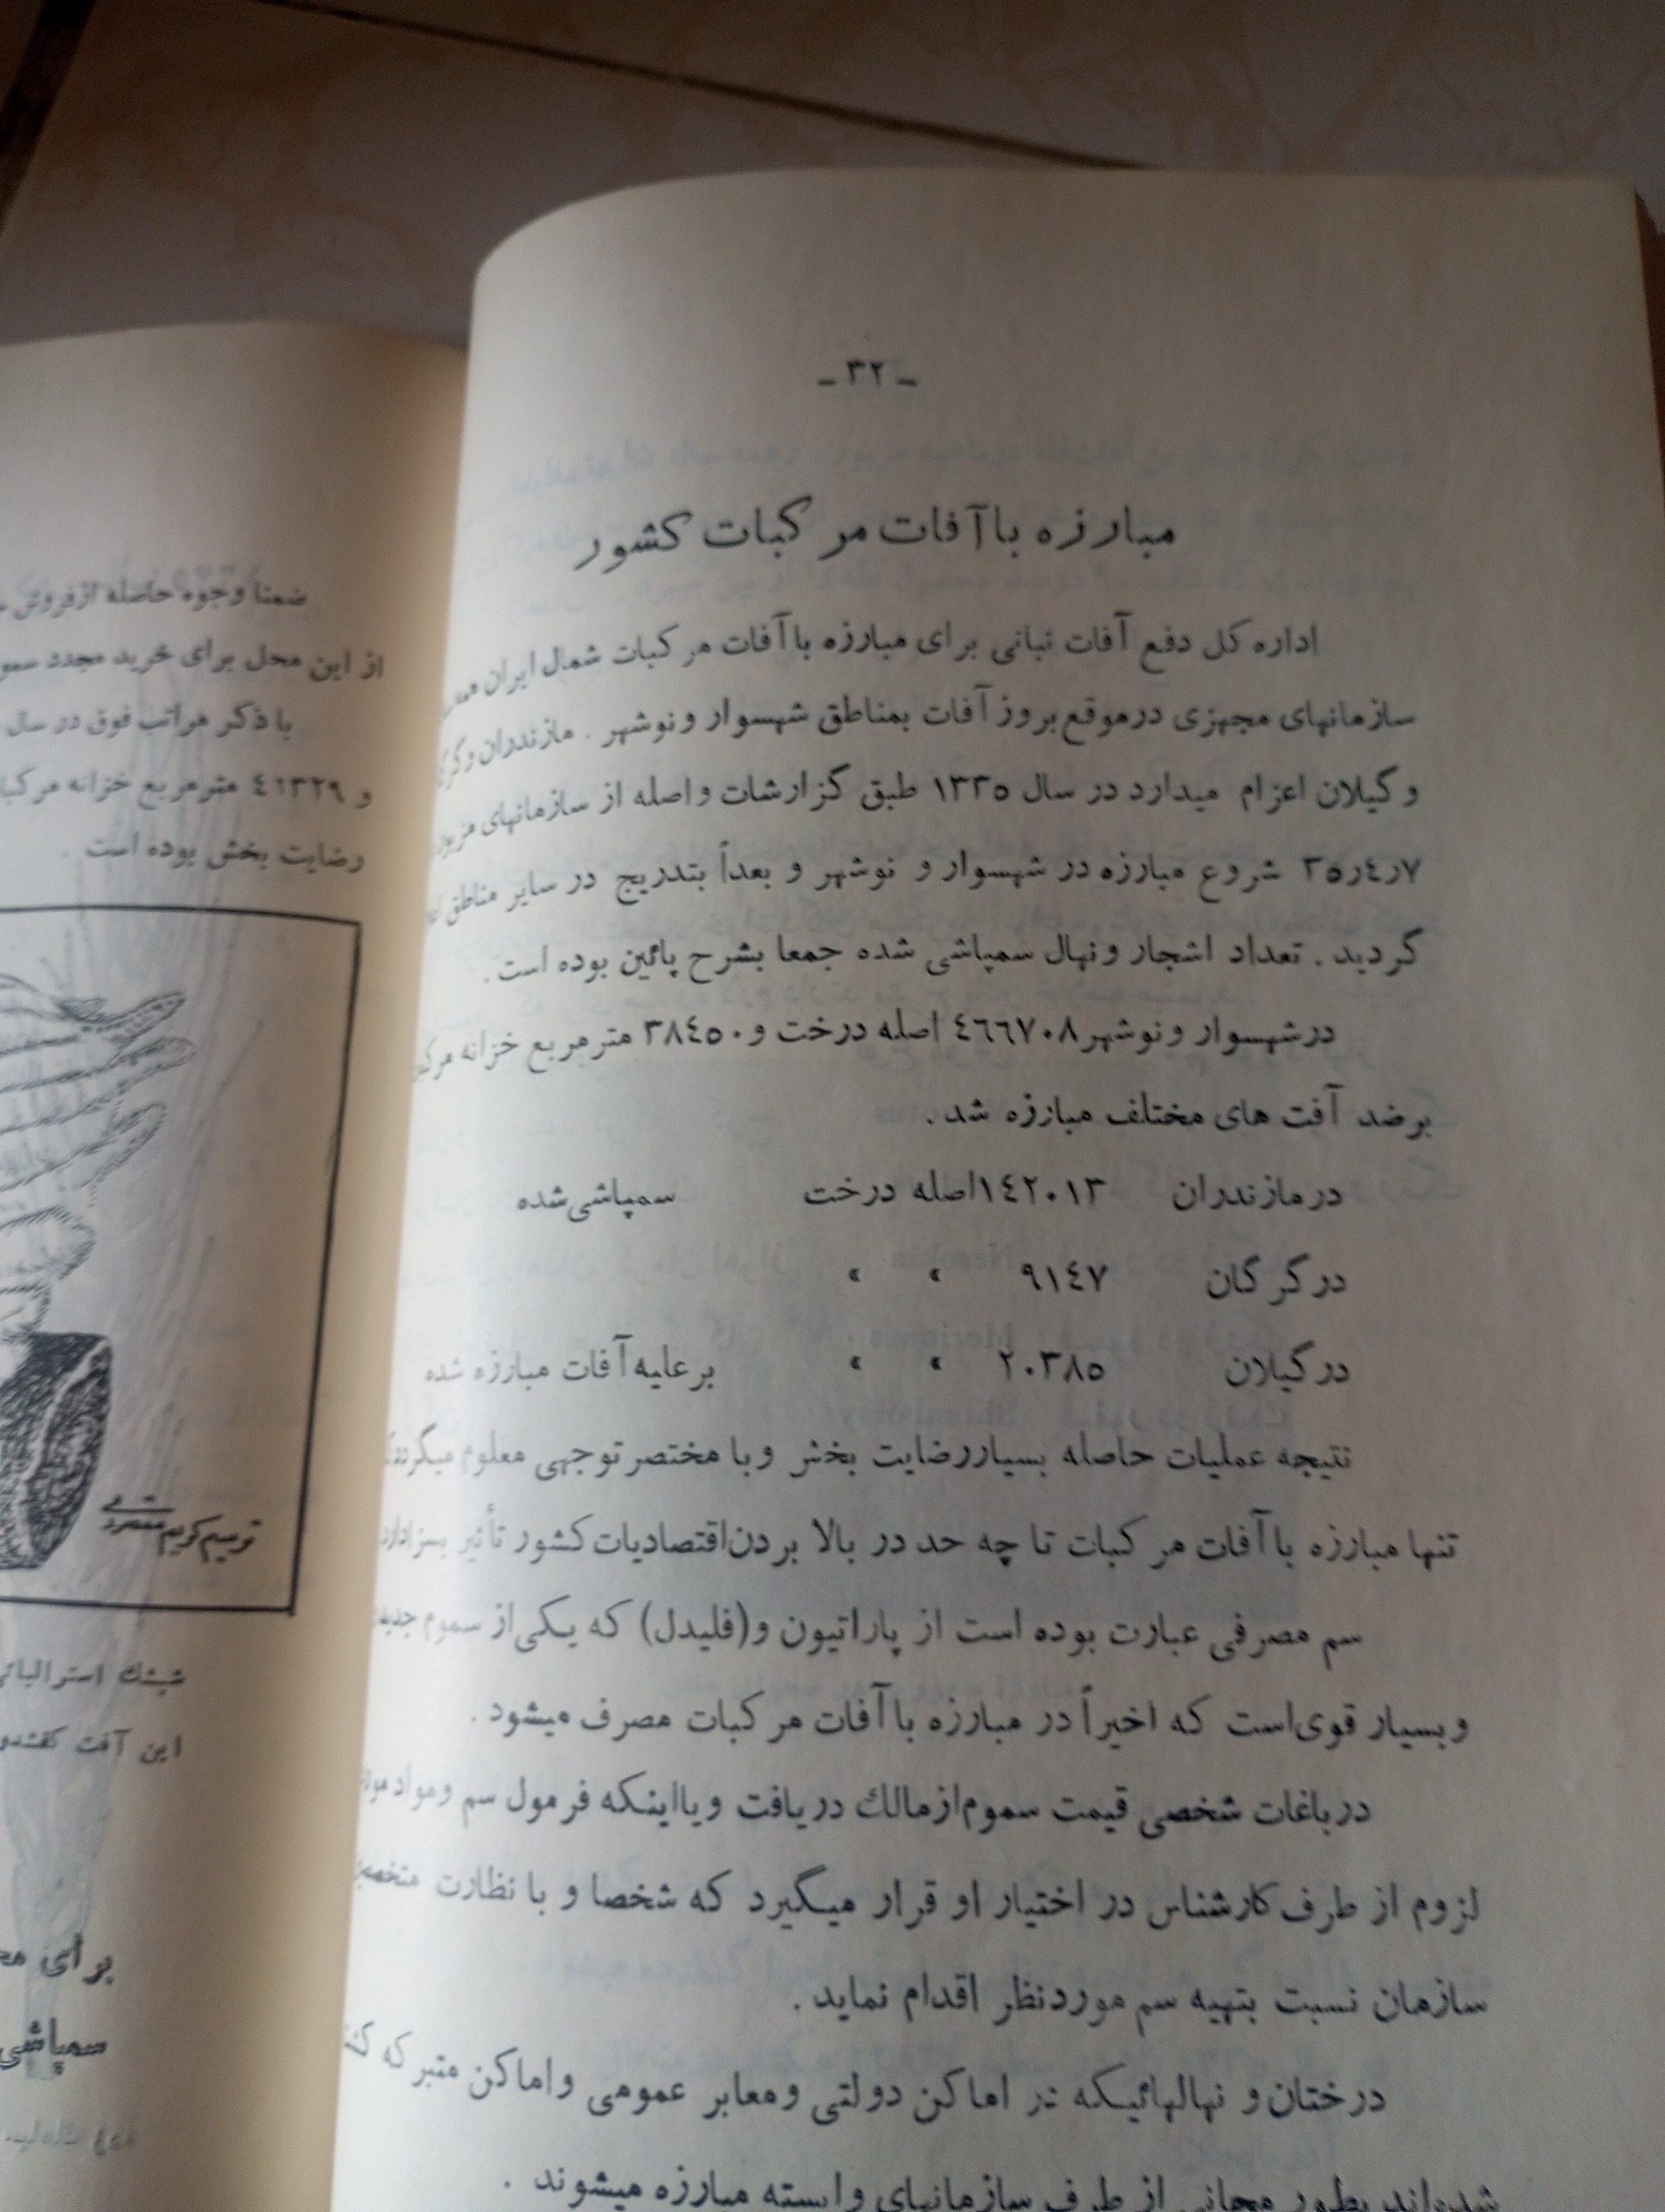 - ٣٢ -
مبارزه با آفات مرکبات کشور
اداره کل دفع آفات نباتی برای مبارزه با آفات مرکبات شمال ایران
سازمانهای مجهزی درموقع بروز آفات بمناطق شهسوار ونوشهر . مازندران و
و گیلان اعزام میدارد در سال ١٣٣٥ طبق گزارشات واصله از سازمانهای
٧ر٤ر٣٥ شروع مبارزه در شهسوار و نوشهر و بعداً بتدریج در سایر مناطق
گردید . تعداد اشجار ونهال سمپاشی شده جمعا بشرح پائین بوده است .
درشهسوار ونوشهر ٤٦٦٧٠٨ اصله درخت و ٣٨٤٥٠ مترمربع خزانه
برضد آفت های مختلف مبارزه شد .
درمازندران ١٤٢٠١٣ اصله درخت سمپاشی شده
در گرگان ٩١٤٧ » »
در گیلان ٢٠٣٨٥ » » بر علیه آفات مبارزه شده
نتیجه عملیات حاصله بسیار رضایت بخش وبا مختصر توجهی معلوم
تنها مبارزه با آفات مرکبات تا چه حد در بالا بردن اقتصادیات کشور تأثیر
سم مصرفی عبارت بوده است از پاراتیون و(فلیدل) که یکی از سموم
وبسیار قوی است که اخیراً در مبارزه با آفات مرکبات مصرف میشود .
درباغات شخصی قیمت سموم ازمالك دریافت ویااینکه فرمول سم ومواد
لزوم از طرف کارشناس در اختیار او قرار میگیرد که شخصا و با نظارت
سازمان نسبت بتهیه سم موردنظر اقدام نماید .
درختان و نهالهائیکه در اماکن دولتی ومعابر عمومی واماکن متبرکه
شده‌اند بطور مجانی از طرف سازمانهای وابسته مبارزه میشوند .
ضمنا وجوه حاصله ازفروش
از این محل برای خرید مجدد
با ذکر مراتب فوق در سال
و ٤١٣٢٩ مترمربع خزانه
رضایت بخش بوده است .
ترسیم کریم
شپشك
این آفت
برای
سمپاشی